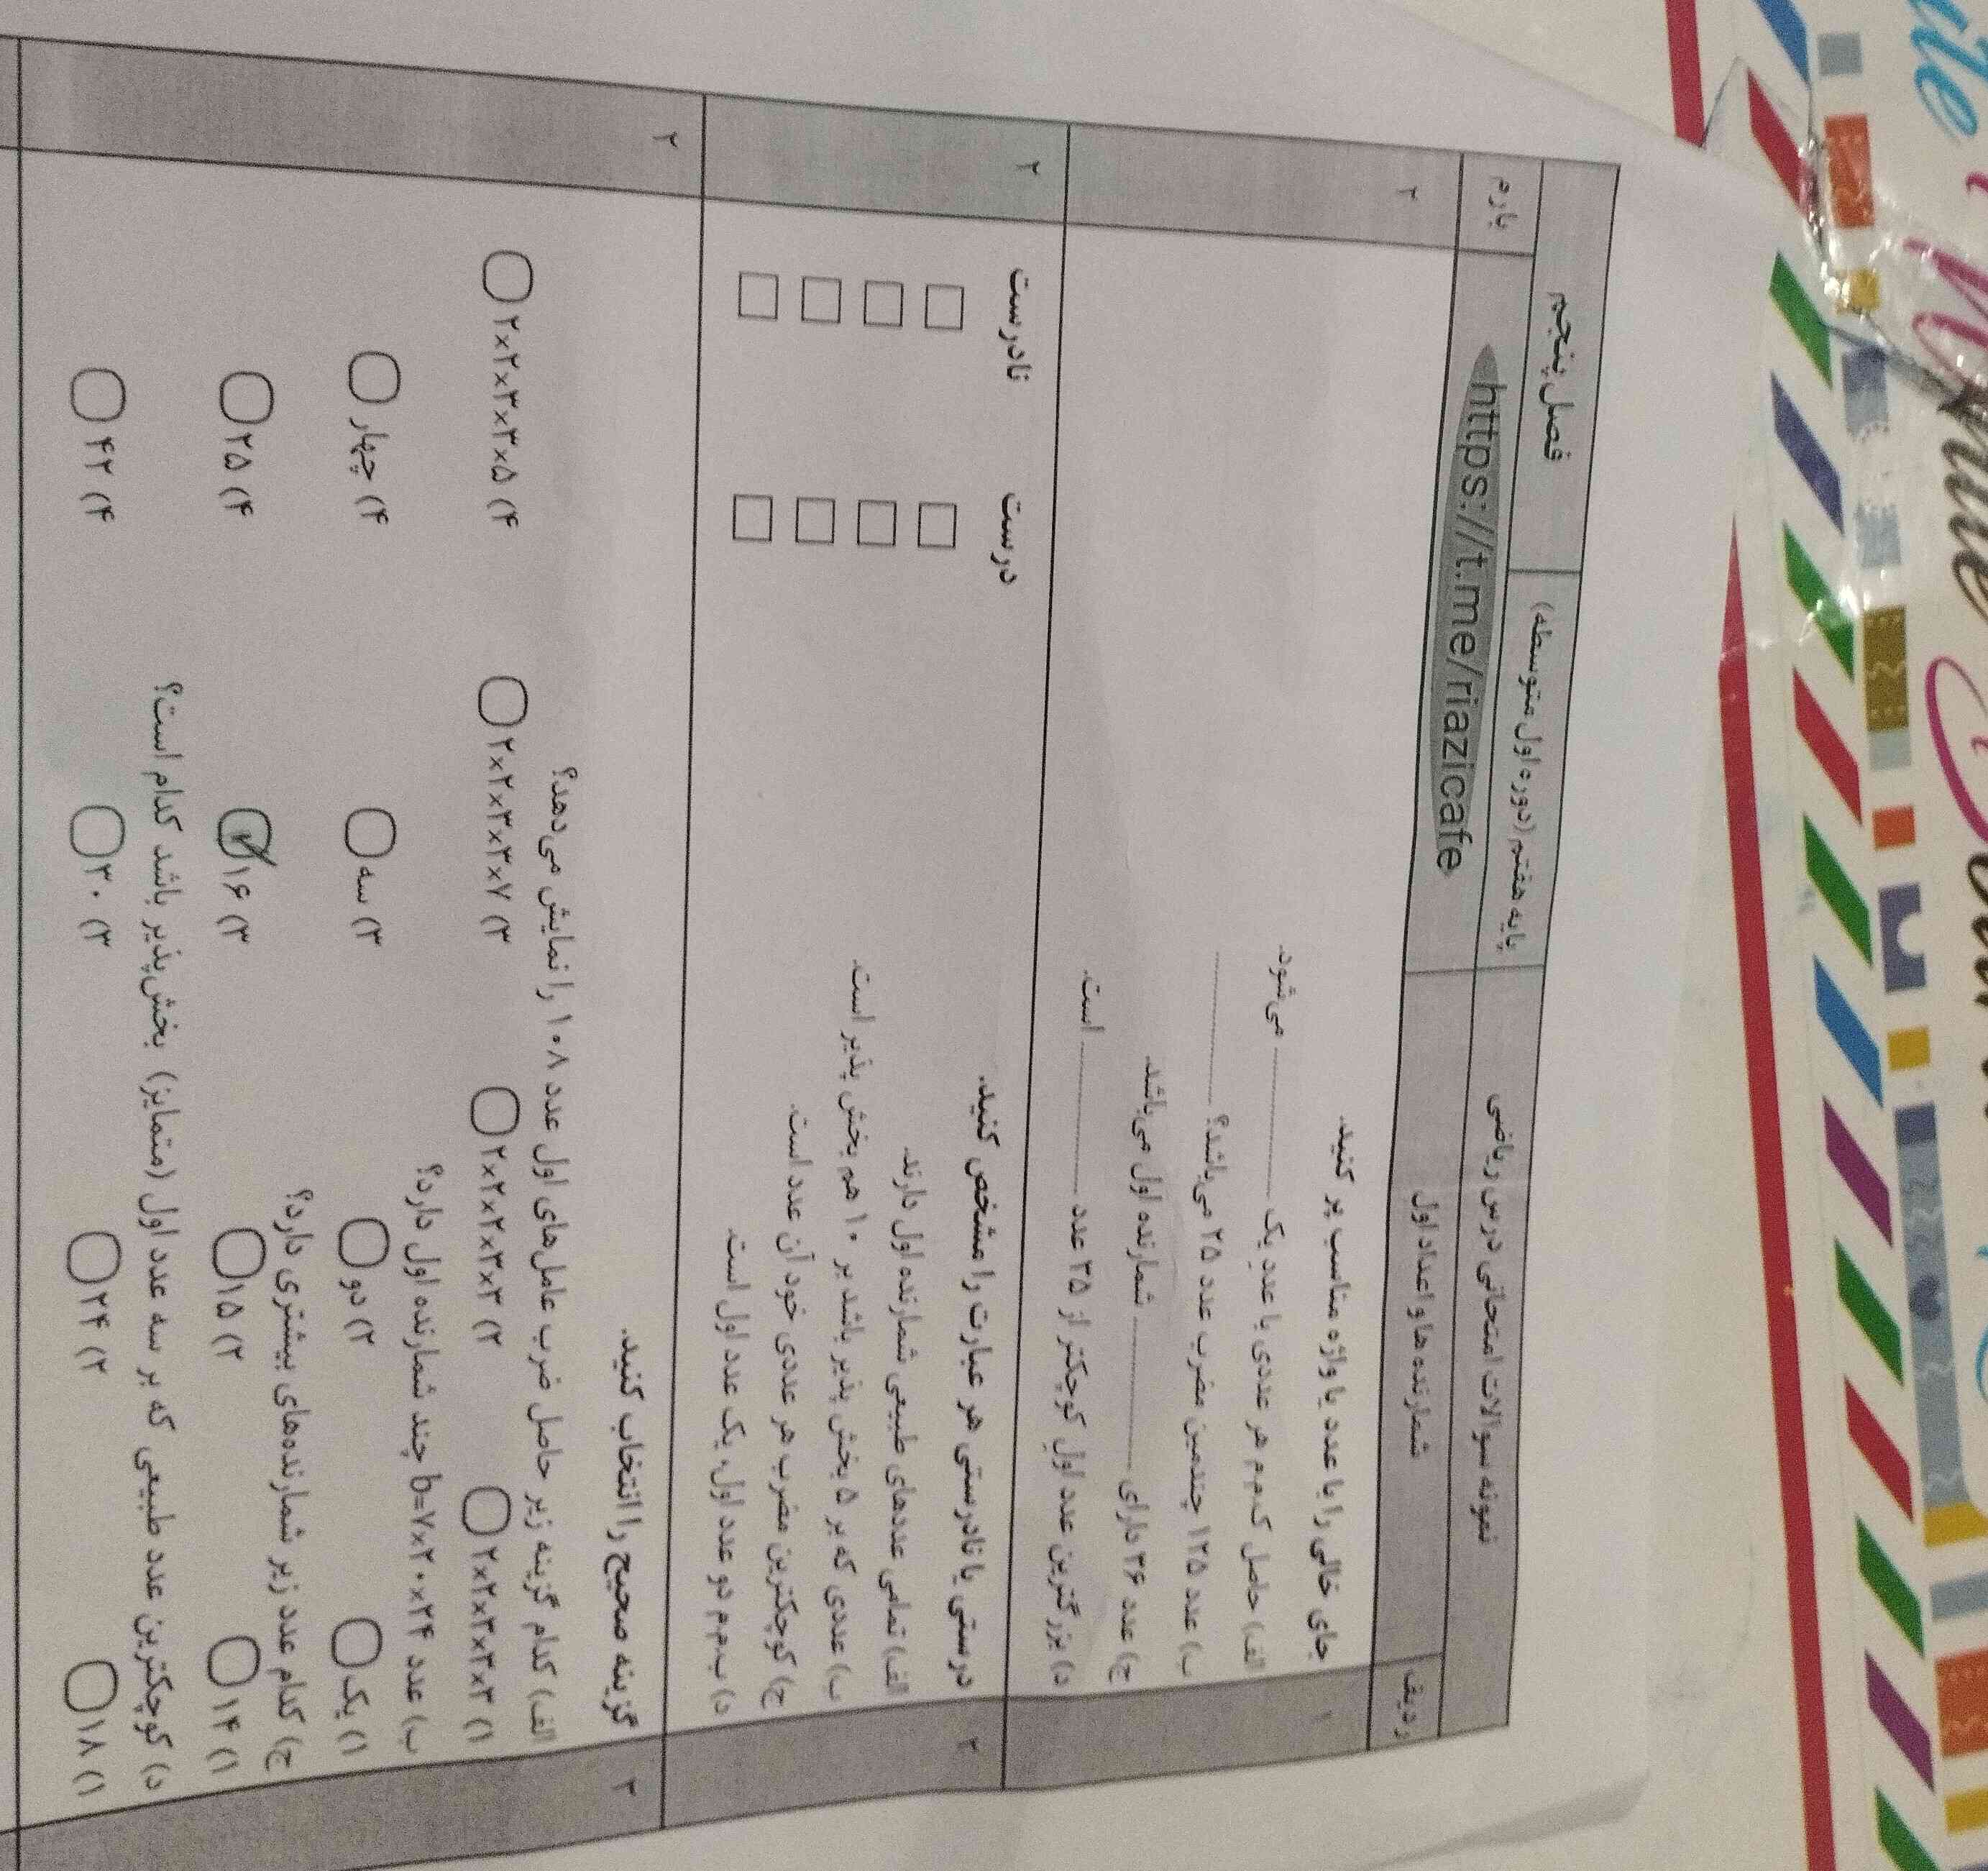 نمونه سوالات امتحانی درس ریاضی پایه هفتم (دوره اول متوسطه) فصل پنجم
ردیف شمارنده ها و اعداد اول https://t.me/riazicafe بارم
۱ جای خالی را با عدد یا واژه مناسب پر کنید. ۲
الف) حاصل ک.م.م هر عددی با عدد یک ........ می‌شود.
ب) عدد ۱۲۵ چندمین مضرب عدد ۲۵ می‌باشد؟ ........
ج) عدد ۳۶ دارای ........ شمارنده اول می‌باشد.
د) بزرگترین عدد اولِ کوچکتر از ۳۵ عدد ........ است.
۲ درستی یا نادرستی هر عبارت را مشخص کنید. درست نادرست ۲
الف) تمامی عددهای طبیعی شمارنده اول دارند.
ب) عددی که بر ۵ بخش پذیر باشد بر ۱۰ هم بخش پذیر است.
ج) کوچکترین مضرب هر عددی خود آن عدد است.
د) ب.م.م دو عدد اول، یک عدد اول است.
۳ گزینه صحیح را انتخاب کنید. ۲
الف) کدام گزینه زیر حاصل ضرب عامل‌های اول عدد ۱۰۸ را نمایش می‌دهد؟
۱) ۲×۲×۳×۳×۳ ۲) ۲×۲×۲×۳×۳ ۳) ۲×۲×۳×۳×۷ ۴) ۲×۲×۳×۳×۵
ب) عدد b=۷×۲۰×۲۴ چند شمارنده اول دارد؟
۱) یک ۲) دو ۳) سه ۴) چهار
ج) کدام عدد زیر شمارنده‌های بیشتری دارد؟
۱) ۱۴ ۲) ۱۵ ۳) ۱۶ ۴) ۲۵
د) کوچکترین عدد طبیعی که بر سه عدد اول (متمایز) بخش‌پذیر باشد کدام است؟
۱) ۱۸ ۲) ۲۴ ۳) ۳۰ ۴) ۴۲